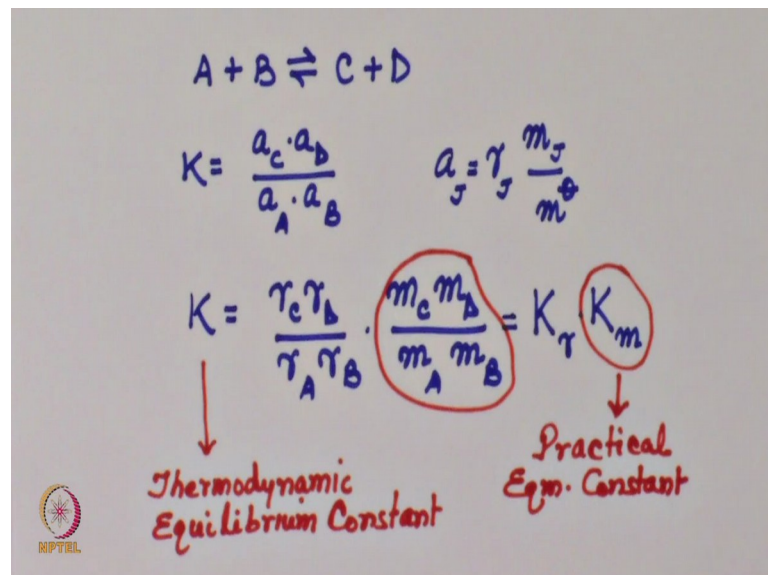 A + B ⇌ C + D
K = a_C · a_D / a_A · a_B    a_J = γ_J m_J / m^⦵
K = γ_C γ_D / γ_A γ_B · m_C m_D / m_A m_B = K_γ · K_m
Thermodynamic
Equilibrium Constant
Practical
Eqm. Constant
NPTEL